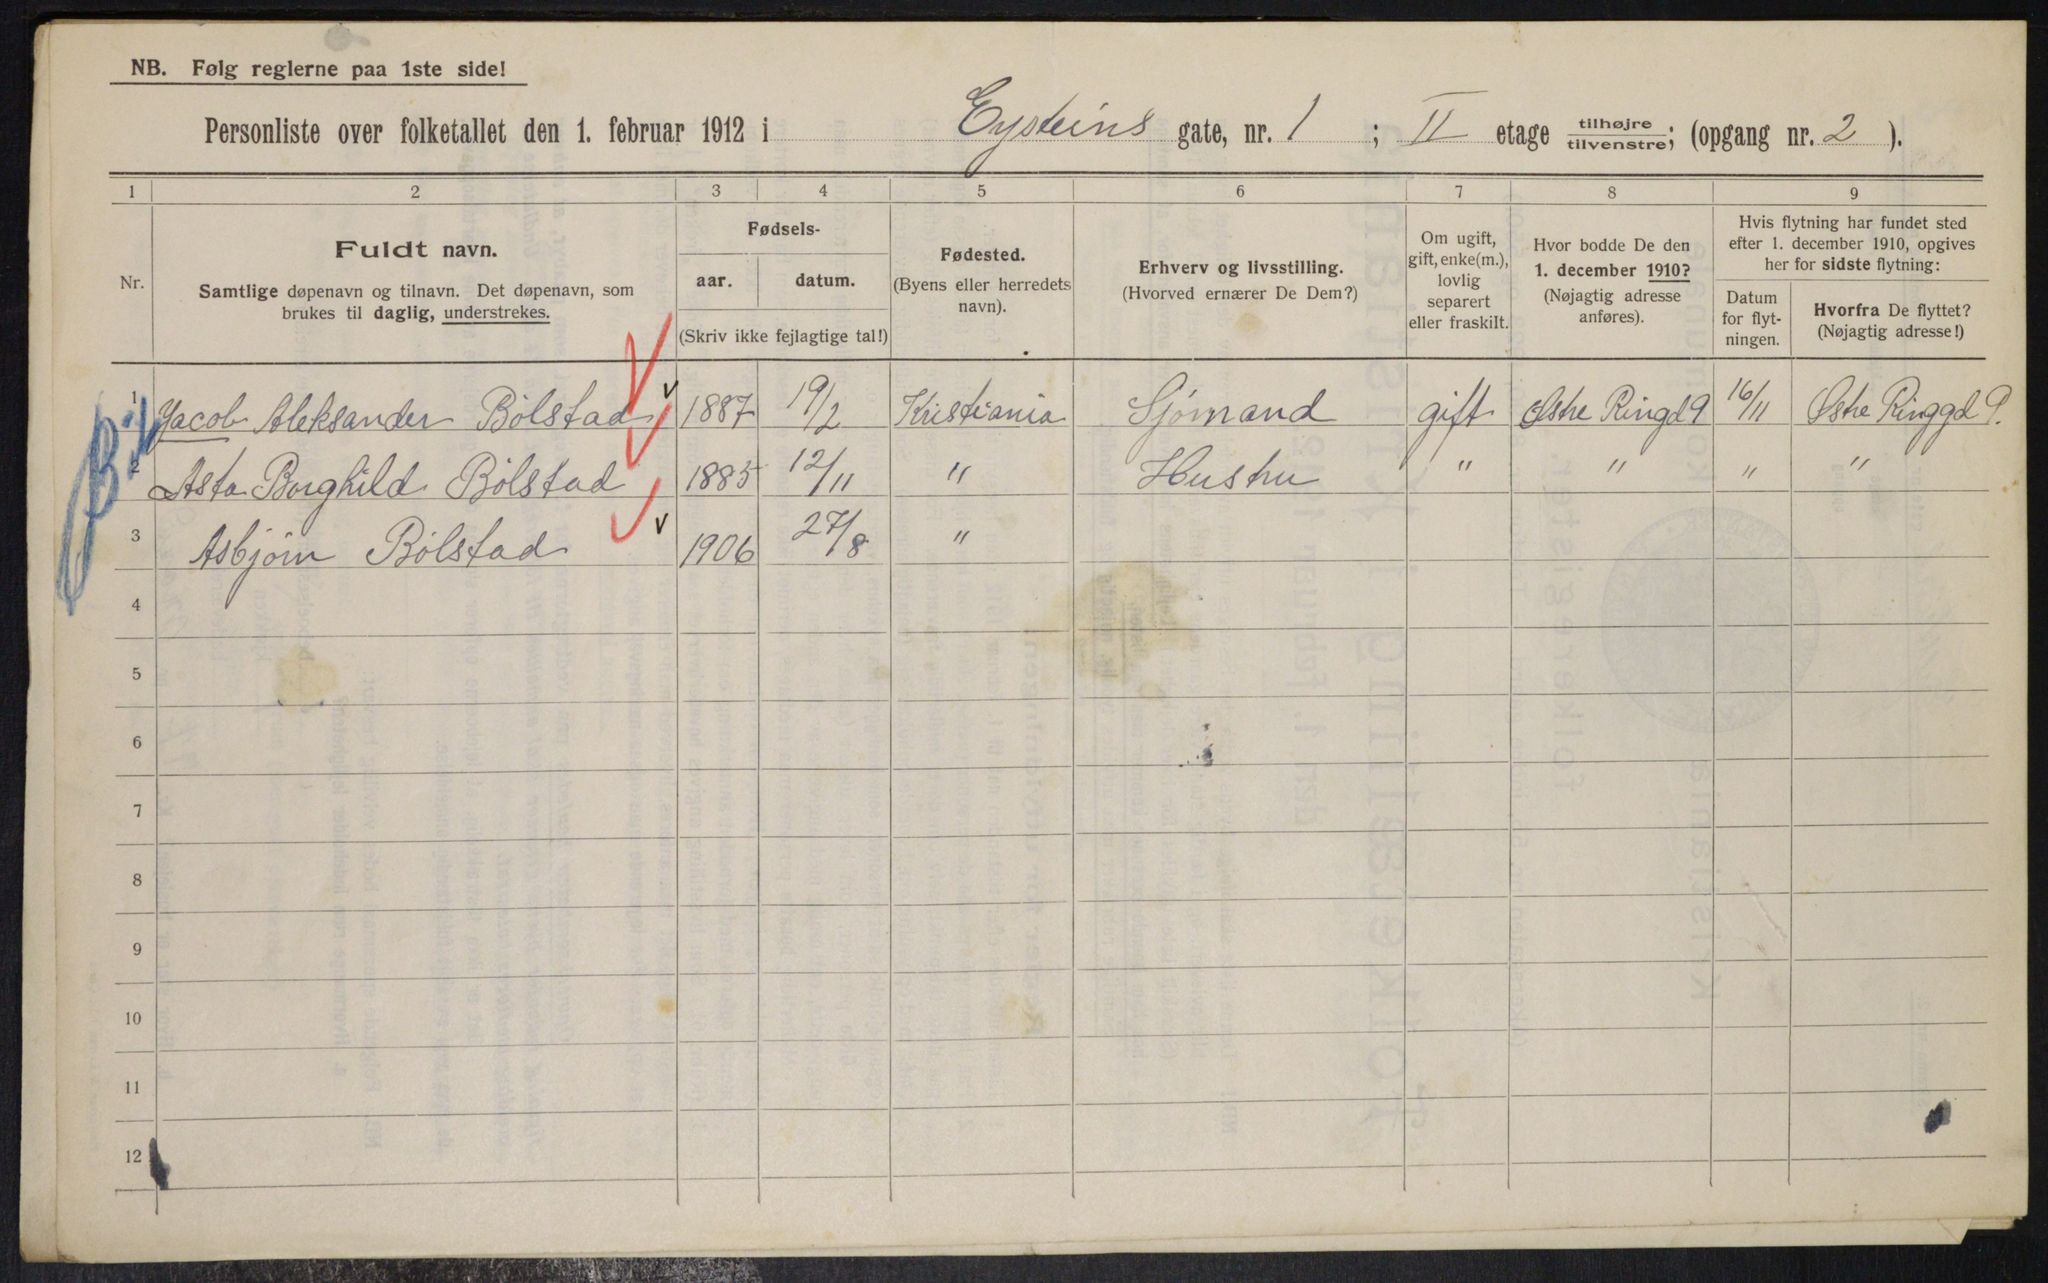 NB. Følg reglerne paa 1ste side!
Personliste over folketallet den 1. februar 1912 i Eysteins gate, nr. 1 ; II etage tilhøjre tilvenstre; (opgang nr. 2 ).
1 2 3 4 5 6 7 8 9
Nr.
Fuldt navn.
Samtlige døpenavn og tilnavn. Det døpenavn, som
brukes til daglig, understrekes.
Fødsels-
aar. datum.
(Skriv ikke fejlagtige tal!)
Fødested.
(Byens eller herredets
navn).
Erhverv og livsstilling.
(Hvorved ernærer De Dem?)
Om ugift,
gift, enke(m.),
lovlig
separert
eller fraskilt.
Hvor bodde De den
1. december 1910?
(Nøjagtig adresse
anføres).
Hvis flytning har fundet sted
efter 1. december 1910, opgives
her for sidste flytning:
Datum
for flyt-
ningen.
Hvorfra De flyttet?
(Nøjagtig adresse!)
1 Jacob Aleksander Bølstad 1887 19/2 Kristiania Sjømand gift Østre Ringd 9 16/11 Østre Ringgd 9.
2 Asta Borghild Bølstad 1885 12/11 " Hustru " " " "
3 Asbjørn Bølstad 1906 27/8 "
4
5
6
7
8
9
10
11
12